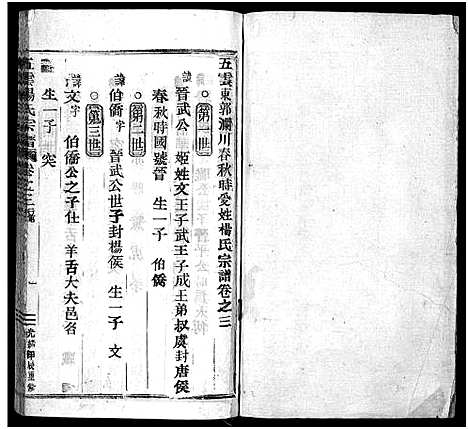 五雲東郭澗川春秋時受姓楊氏宗譜卷之三
第一世
諱晉武公 姬姓文王子武王子成王弟叔虞封唐侯
春秋時國號晉 生一子 伯僑
第二世
諱伯僑字 晉武公世子封楊侯 生一子 文
第三世
諱文字 伯僑公之子仕 羊舌大夫邑名
生一子 突
五雲楊氏宗譜 卷之三
一